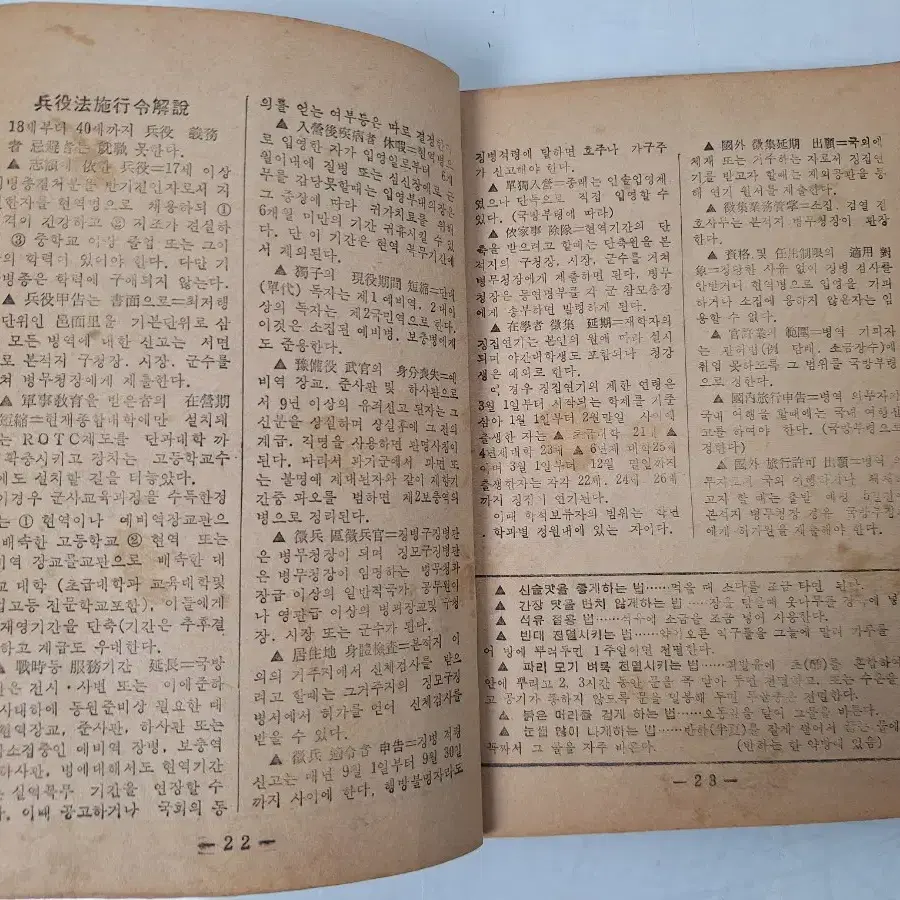 兵役法施行令解說
18세부터 40세까지 兵役 義務
者 忌避者는 就職 못한다.
▲ 志願에 依한 兵役=17세 이상
징병종결처분을 받기전인자로서 지
한자를 현역병으로 채용하되 ①
격이 건강하고 ② 지조가 견실하
③ 중학교 이상 졸업 또는 그이
의 학력이 있어야 한다. 다만 기
병종은 학력에 구애되지 않는다.
▲ 兵役申告는 書面으로=최저행
단위인 邑面里을 기본단위로 삼
모든 병역에 대한 신고는 서면
로 본적지 구청장. 시장, 군수를
쳐 병무청장에게 제출한다.
▲ 軍事教育을 받은者의 在營期
短縮=현재종합대학에만 설치되
는 ROTC제도를 단과대학 까
확충시키고 장차는 고등학교수
에도 실치할 길을 터놓았다.
이경우 군사교육과정을 수득한경
는 ① 현역이나 예비역장교관으
배속한 고등학교 ② 현역 또는
비역 장교를교관으로 배속한 대
교 대학 (초급대학과 교육대학및
업고등 전문학교포함), 이들에게
재영기간을 단축(기간은 추후결
하고 계급도 우대한다.
▲ 戰時등 服務기간 延長=국방
은 전시·사변 또는 이에준하
사태하에 동원준비상 필요한 때
현역장교, 준사관, 하사관 또는
소집중인 예비역 장병, 보충역
하사관, 병에대해서도 현역기간
는 실역복무 기간을 연장할 수
다. 이때 공고하거나 국회의 동
의를 얻는 여부등은 따로 결정한다
▲ 入營後疾病者 休暇=현역병으
로 입영한 자가 입영일로부터 6개
월이내에 질병 또는 심신장애로 복
무를 감당못할때는 입영부대의장은
그 증상에 따라 귀가치료를 위해
6개월 미만의 기간 귀휴시킬 수 있
다. 단 이 기간은 현역 복무기간에
서 제외된다.
▲ 獨子의 現役期間 短縮=단대
(單代) 독자는 제1예비역, 2대이
상의 독자는 제2국민역으로 한다.
이것은 소집된 예비병. 보충병에게
도 준용한다.
▲ 豫備役 武官의 身分喪失=예
비역 장교. 준사관 및 하사관으로
서 9년 이상의 유러선고 된자는 그
신분을 상실하며 상실후에 그전의
계급. 직명을 사용하면 관명사칭이
된다. 따라서 과기군에서 파면 또
는 불명예 제대된자와 같이 제한기
간중 과오를 범하면 제2보충역의
병으로 정리된다.
▲ 徵兵 區徵兵官=징병구징병관
은 병무청장이 되며 징모구징병관
은 병무청장이 임명하는 병무청과
장급 이상의 일반직국가 공무원이
나 영관급 이상의 병과장교및 구청
장. 시장 또는 군수가 된다.
▲ 居住地 身體檢查=본적지 이
외의 거주지에서 신체검사를 받으
려고 할때는 그거주지의 징모구징
병서에서 허가를 얻어 신체검사를
받을 수 있다.
▲ 徵兵 適令者 申告=징병 적령
신고는 매년 9월 1일부터 9월 30일
까지 사이에 한다. 행방불명자라도
— 22 —
징병적령에 달하면 호주나 가구주
가 신고해야 한다.
▲ 單獨入營=종래는 인솔입영제
였으나 단독으로 직접 입영할수
있다. (국방부령에 따라)
▲ 依家事 除隊=현역기간의 단
축을 받으려고 할때는 단축원을 본
적지의 구청장, 시장, 군수를 거쳐
병무청장에게 제출하면 된다. 병무
청장은 동연명부를 각 군 참모총장
에게 송부하면 발령하게 된다.
▲ 在學者 徵集 延期=재학자의
징집연기는 본인의 원에 따라 실시
되며 야간대학생도 포함되나 청강
생은 예외로 한다.
이, 경우 징집연기의 제한 연령은
3월 1일부터 시작되는 학제를 기준
삼아 1월 1일부터 2월말일 사이에
출생한 자는 ▲ 초급대학 21세 ▲
4년제대학 23세 ▲ 6년제 대학25세
이며 3월 1일부터 12월 말일까지
출생한자는각각 22세. 24세. 26세
까지 징집이 연기된다.
이때 학적보류자의 범위는 학년
. 학과별 정원내에 있는 자이다.
▲ 國外 徵集延期 出願=국외에
체재 또는 거주하는 자로서 징집연기
를 받고자 할때는 재외공관을 통
해 연기 원서를 제출한다.
▲ 徵集業務管掌=소집. 검열 전
호사무는 본적지 병무청장이 관장
한다.
▲ 資格 및 任用制限의 適用 對
象=정당한 사유 없이 징병 검사를
안받거나 현역병으로 입영을 기피
하거나 소집에 응하지 않은자는 임
용할 수 없다.
▲ 官許業의 範圍=병역 기피자
는 관허업(例 담배. 소금장수)에
취업 못하도록 그 범위를 국방부령
으로 정한다.
▲ 國內旅行申告=병역 의무자가
국내 여행을 할때에는 국내 여행신
고를 하여야 한다. (국방부령으로
정한다)
▲ 國外 旅行許可 出願=병역 의
무자로서 국외 여행하거나 체재하
고자 할 때는 출발 예정 5일전에
본적지 병무청장 경유 국방부장관
에게 허가원을 제출해야 한다.
▲ 신술맛을 좋게하는 법……먹을 때 소다를 조금 타면 된다.
▲ 간장 맛을 변치 않게하는 법……장을 담을때 옻나무를 장 속에 넣
▲ 석유 절용 법……석유에 소금을 조금 넣어 사용한다.
▲ 빈대 전멸시키는 법……약이오른 역구풀을 그늘에 말려 가루를
어 뿌리면 1주일이면 전멸한다.
▲ 파리 모기 벼룩 전멸시키는 법……휘발윤에 초(酢)를 혼합하여
안에 뿌리고 2, 3시간 동안 문을 꼭 닫아 두면 전멸되고, 또는 수은을
고 공기가 통하지 않도록 문을 밀봉해 두면 무엇이든 전멸한다.
▲ 붉은 머리를 검게 하는 법……오동잎을 달여 그물을 바른다.
▲ 눈썹 많이 나게하는 법……반하(半夏)를 잘게 썰어서
짝짜서 그 물을 자주 바른다. (반하는 한 약방에 있음)
— 23 —